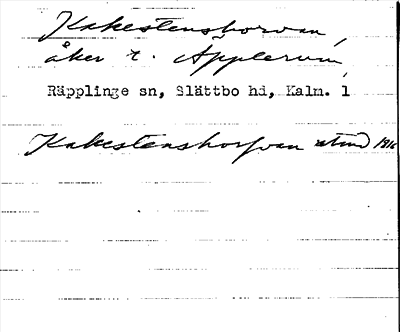 Kakestenshorvan,
åker t. Äpplerum,
Räpplinge sn, Slättbo hd, Kalm. l
Kakestenshorfvan utmd 1916